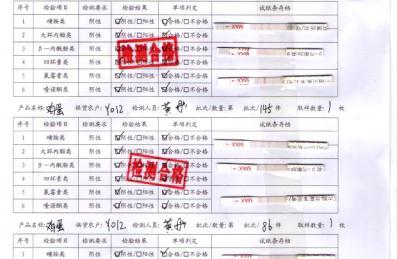 序号 检验项目 检测要求 检验结果 单项判定 试纸条存档
1 磺胺类 阴性 ☑阴性/□阳性 ☑合格/□不合格
2 大环内酯类 阴性 ☑阴性/□阳性 ☑合格/□不合格
3 β—内酰胺类 阴性 ☑阴性/□阳性 ☑合格/□不合格
4 四环素类 阴性 ☑阴性/□阳性 ☑合格/□不合格
5 氟喹诺类 阴性 ☑阴性/□阳性 ☑合格/□不合格
6 喹诺酮类 阴性 ☑阴性/□阳性 ☑合格/□不合格
检测合格
产品名称: 鸡蛋 供货农户: Y012 检测人员: 批次/数量: 第 /145件 取样数量: 1 枚
序号 检验项目 检测要求 检验结果 单项判定 试纸条存档
1 磺胺类 阴性 ☑阴性/□阳性 ☑合格/□不合格
2 大环内酯类 阴性 ☑阴性/□阳性 ☑合格/□不合格
3 β—内酰胺类 阴性 ☑阴性/□阳性 ☑合格/□不合格
4 四环素类 阴性 ☑阴性/□阳性 ☑合格/□不合格
5 氟喹诺类 阴性 ☑阴性/□阳性 ☑合格/□不合格
6 喹诺酮类 阴性 ☑阴性/□阳性 ☑合格/□不合格
检测合格
产品名称: 鸡蛋 供货农户: Y012 检测人员: 批次/数量: 第 /86件 取样数量: 1 枚
序号 检验项目 检测要求 检验结果 单项判定 试纸条存档
1 磺胺类 阴性 ☑阴性/□阳性 ☑合格/□不合格